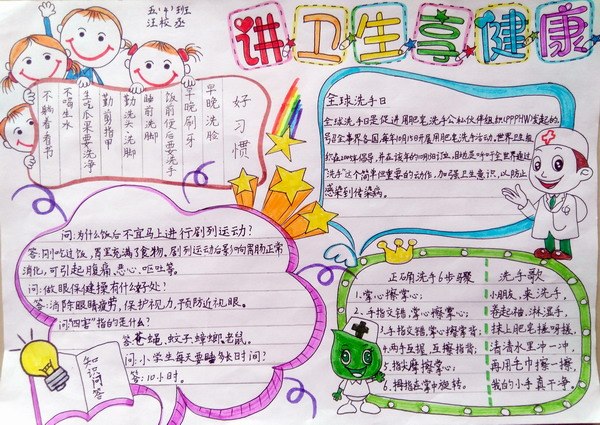 五(4)班
汪梭丞
讲卫生享健康
好习惯
早晚洗脸
早晚刷牙
饭前便后要洗手
睡前洗脚
勤洗头洗脚
勤剪指甲
生吃瓜果要洗净
不喝生水
不躺着看书
全球洗手日
全球洗手日是促进用肥皂洗手公私伙伴组织(PPPHW)发起的
号召全世界各国,每年10月15日开展用肥皂洗手活动。世界卫生组
"洗手"这个简单但重要的动作,加强卫生意识,以防止
感染到传染病。
问:为什么饭后不宜马上进行剧烈运动?
答:刚吃过饭,胃里充满了食物。剧烈运动后影响胃肠正常
消化,可引起腹痛、恶心、呕吐等。
问:做眼保健操有什么好处?
答:消除眼睛疲劳,保护视力,预防近视眼。
问:"四害"指的是什么?
答:苍蝇,蚊子,蟑螂,老鼠。
问:小学生每天要睡多长时间?
答:10小时。
知识问答
正确洗手6步骤
1.掌心擦掌心;
2.手指交错,掌心擦掌心;
3.手指交错,掌心擦掌背;
4.两手互握,互擦指背;
5.指尖摩擦掌心;
6.拇指在掌中旋转。
洗手歌
小朋友,来洗手,
卷起袖,淋湿手,
抹上肥皂搓呀搓,
清清水里冲一冲,
再用毛巾擦一擦,
我的小手真干净。